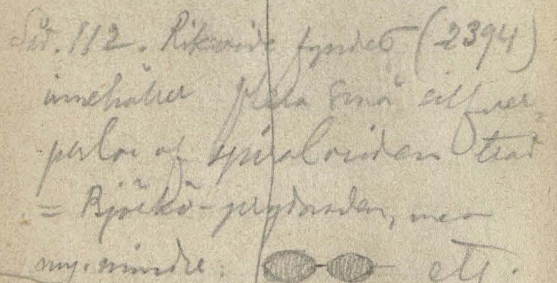 Sid. 112. Rikvide fyndet (2394)
innehåller flera små silfver-
perlor af spiralvriden tråd
= Björkö-prydnaden, men
my. mindre: etc.